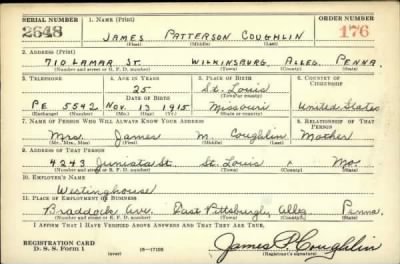 SERIAL NUMBER 1. NAME (Print) ORDER NUMBER
2648 JAMES PATTERSON COUGHLIN 176
(First) (Middle) (Last)
2. ADDRESS (Print)
710 LAMAR ST. WILKINSBURG ALLEG. PENNA.
(Number and street or R. F. D. number) (Town) (County) (State)
3. TELEPHONE 4. AGE IN YEARS 5. PLACE OF BIRTH 6. COUNTRY OF CITIZENSHIP
25 St. Louis
DATE OF BIRTH (Town or county)
PE 5542 Nov. 13 1915 Missouri United States
(Exchange) (Number) (Mo.) (Day) (Yr.) (State or country)
7. NAME OF PERSON WHO WILL ALWAYS KNOW YOUR ADDRESS 8. RELATIONSHIP OF THAT PERSON
Mrs. James M. Coughlin Mother
(Mr., Mrs., Miss) (First) (Middle) (Last)
9. ADDRESS OF THAT PERSON
4243 Juniata St. St. Louis Mo.
(Number and street or R. F. D. number) (Town) (County) (State)
10. EMPLOYER'S NAME
Westinghouse
11. PLACE OF EMPLOYMENT OR BUSINESS
Braddock Ave. East Pittsburgh, Alleg. Penna.
(Number and street or R. F. D. number) (Town) (County) (State)
I AFFIRM THAT I HAVE VERIFIED ABOVE ANSWERS AND THAT THEY ARE TRUE.
REGISTRATION CARD
D. S. S. Form 1 (over) 16—17105 James P. Coughlin
(Registrant's signature)